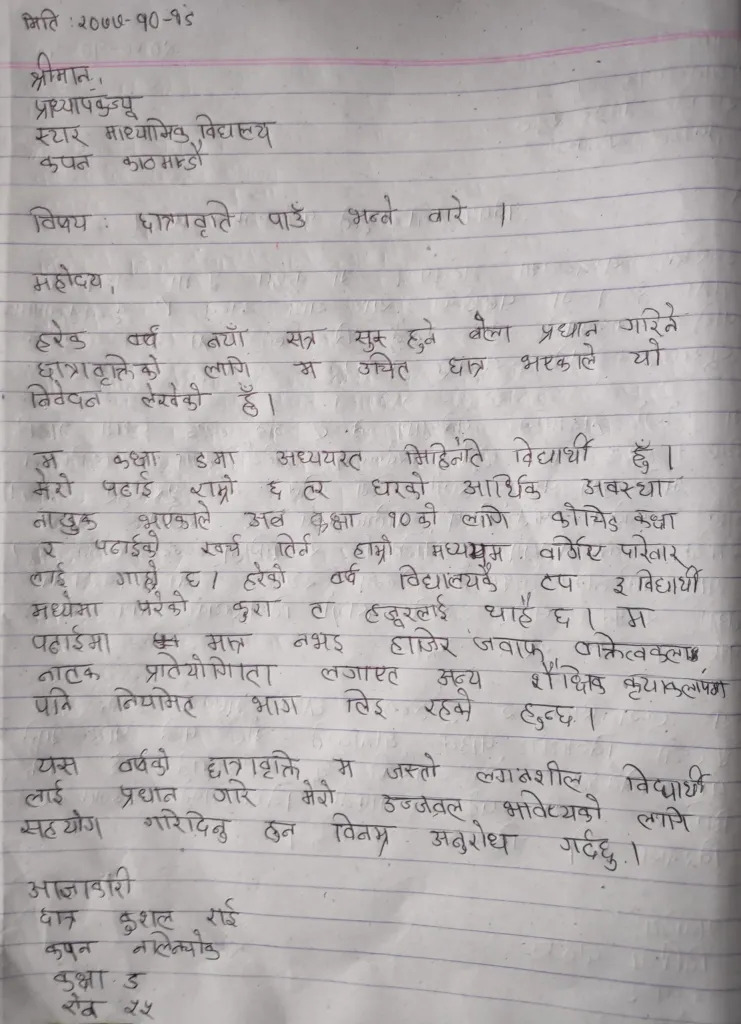 मिति : २०७७-१०-१८
श्रीमान्,
प्रध्यापकज्यू
स्टार माध्यामिक विद्यालय
कपन काठमाण्डौ
विषय : छात्रावृति पाउँ भन्ने वारे ।
महोदय,
हरेक वर्ष नयाँ सत्र सुरु हुने वेला प्रधान गरिने
छात्रावृत्तिको लागि म उचित छात्र भएकाले यो
निवेदन लेखेको हुँ ।
म कक्षा ९मा अध्ययरत मिहिनेति विद्यार्थी हुँ ।
मेरो पढाई राम्रो छ तर घरको आर्थिक अवस्था
नाजुक भएकाले अव कक्षा १०को लागि कोचिङ कक्षा
र पढाईको खर्च तिर्न हाम्रो मध्यम वर्गिए परिवार
लाई गाह्रो छ । हरेको वर्ष विद्यालयकै टप ३ विद्यार्थी
मध्येमा परेको कुरा त हजूरलाई थाहै छ । म
पढाईमा मात्र नभइ हाजिर जवाफ वक्तित्वकला
नाटक प्रतियोगिता लगाएत अन्य शैक्षिक कृयाकलापमा
पनि नियमित भाग लिइ रहको हुन्छु ।
यस वर्षको छात्रावृत्ति म जस्तो लगनशील विद्यार्थी
लाई प्रधान गरि मेरो उज्जवल भविष्यको लागि
सहयोग गरिदिनु हुन विनम्र अनुरोध गर्दछु ।
आज्ञाकारी
छात्र कुशल राई
कपन
कक्षा ९
रोल २५